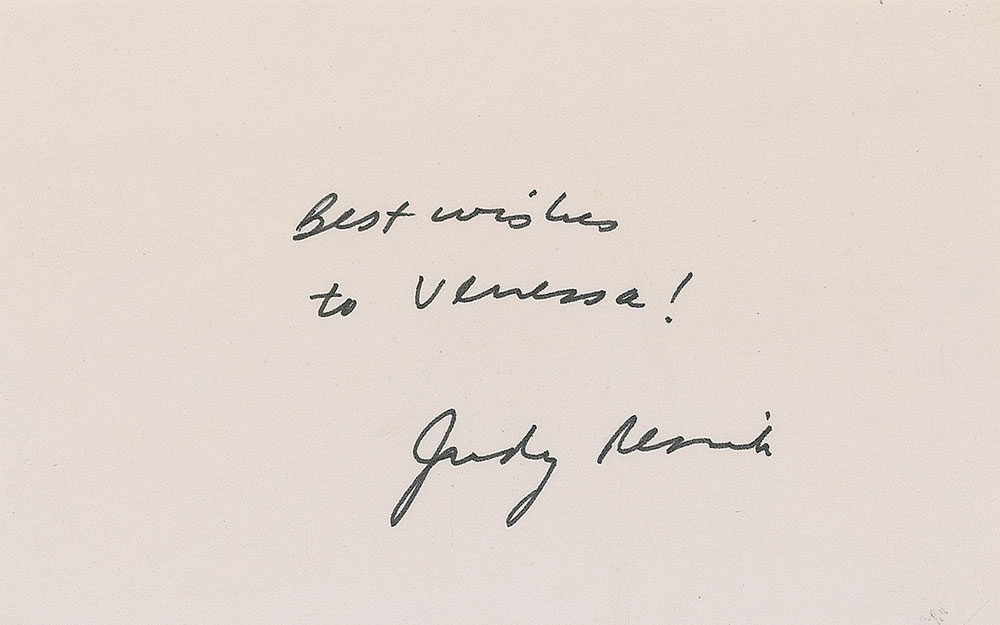 Best wishes
to Venessa!
Judy Resnik